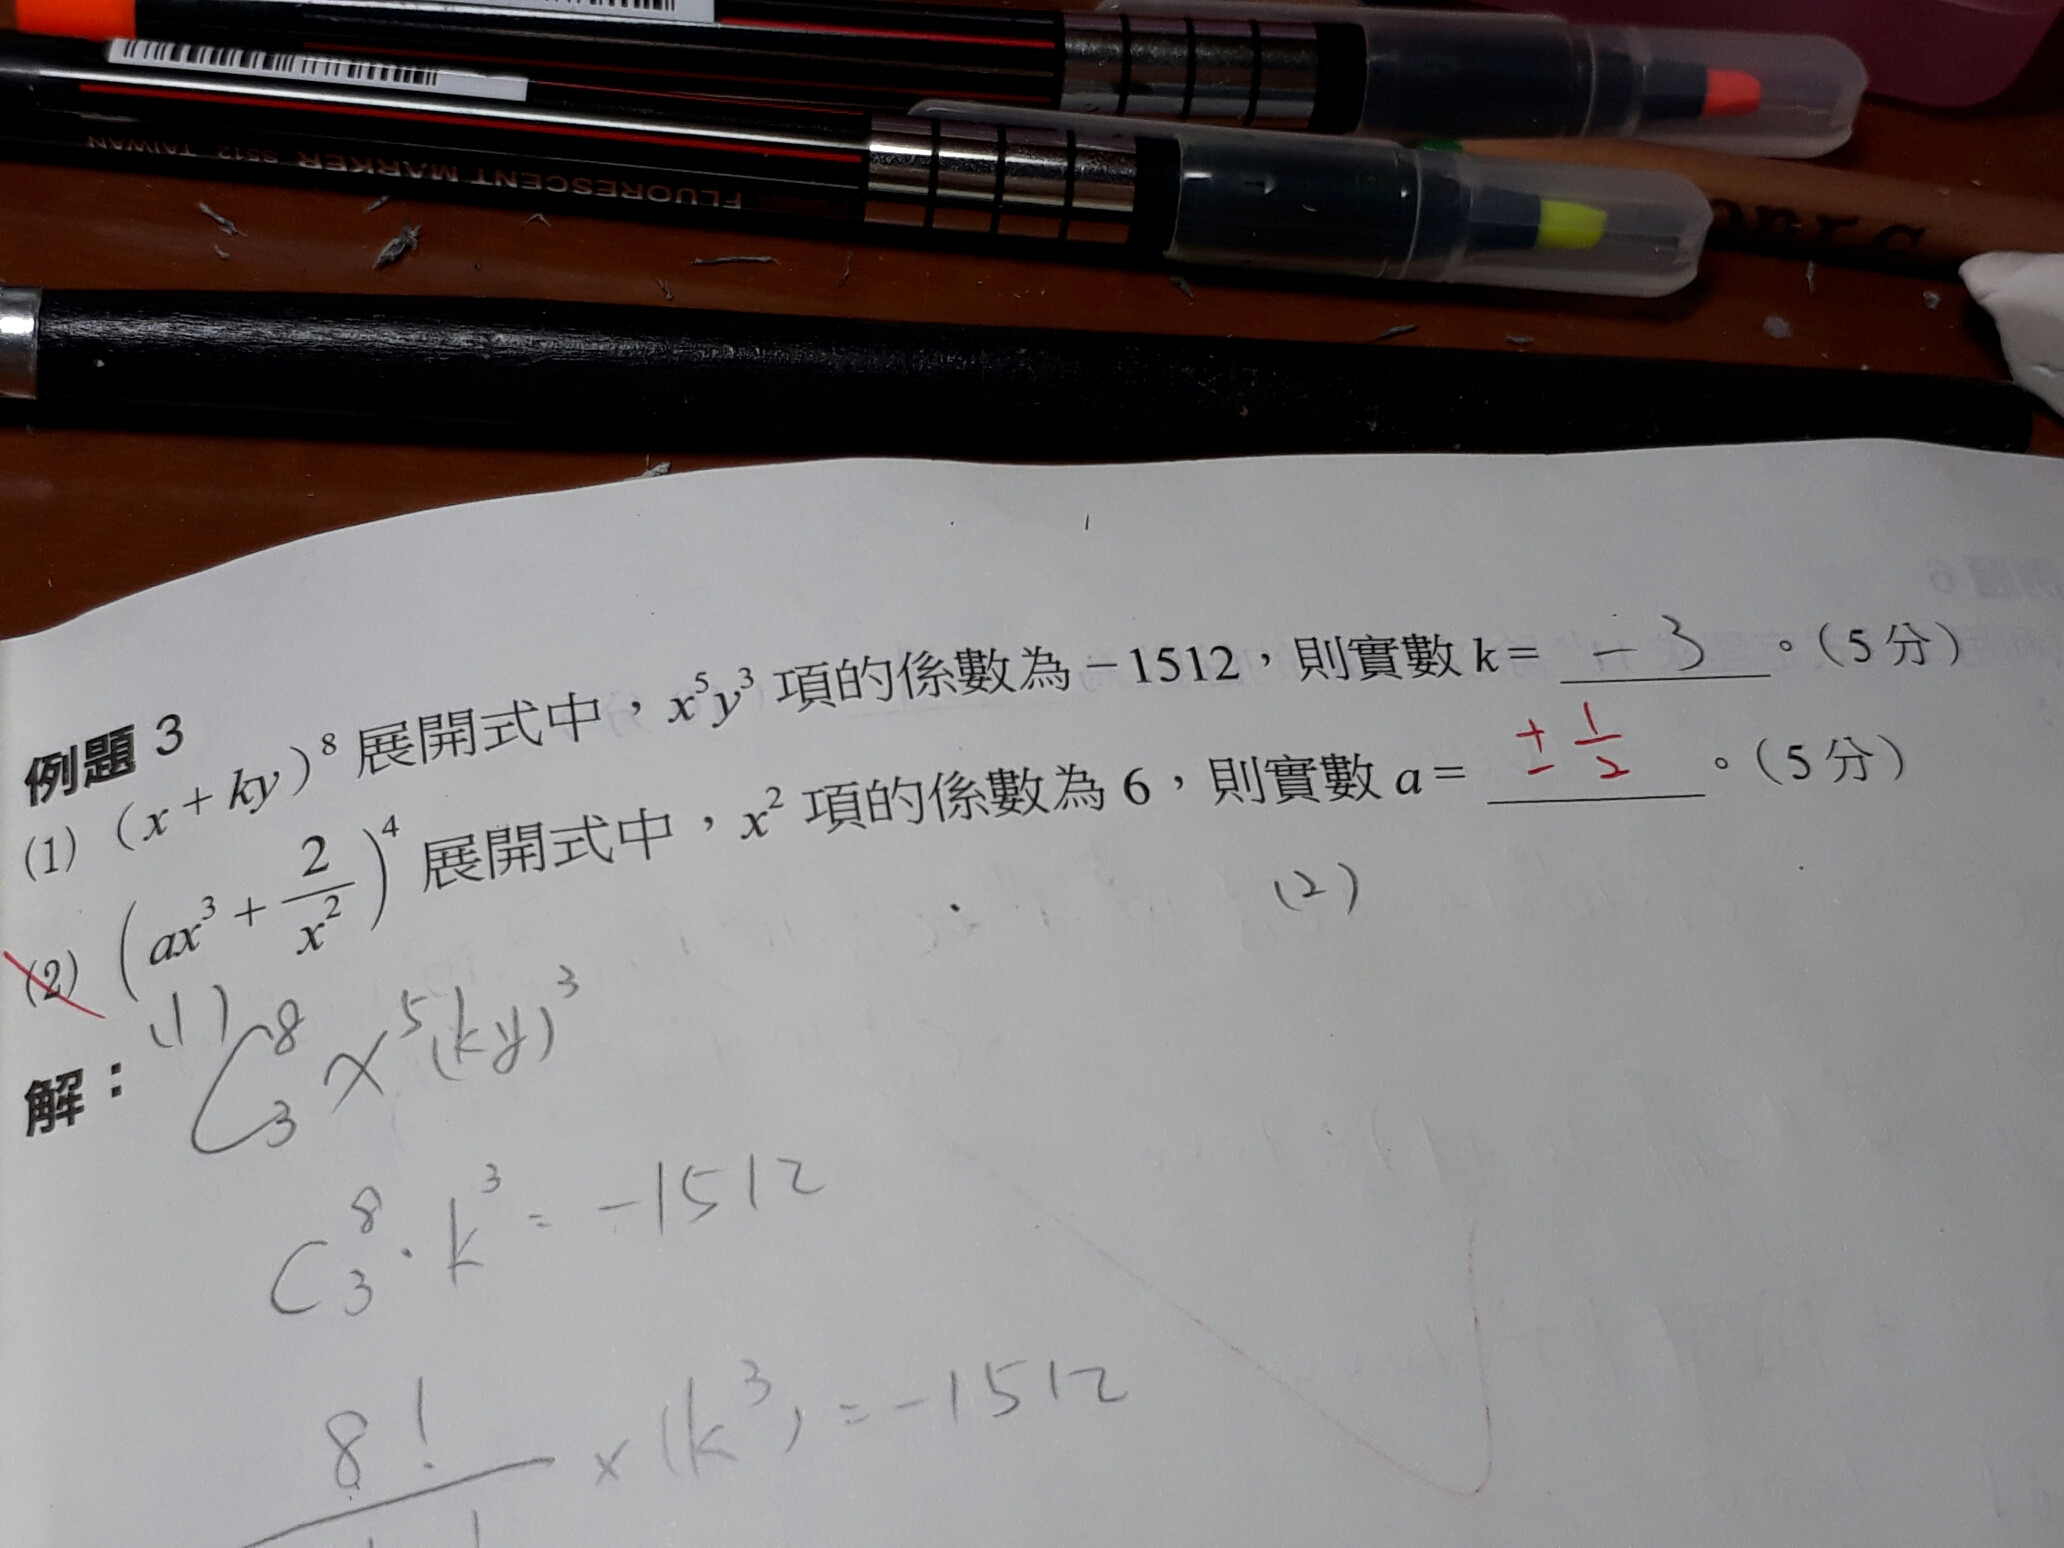 FLUORESCENT MARKER S512 TAIWAN
例題 3
(1) (x + ky)⁸ 展開式中，x⁵y³ 項的係數為 −1512，則實數 k = -3 。（5 分）
(2) (ax³ + 2/x²)⁴ 展開式中，x² 項的係數為 6，則實數 a = ± 1/2 。（5 分）
(2)
解： (1) C⁸₃ x⁵ (ky)³
C⁸₃ · k³ = -1512
8! × (k³) = -1512